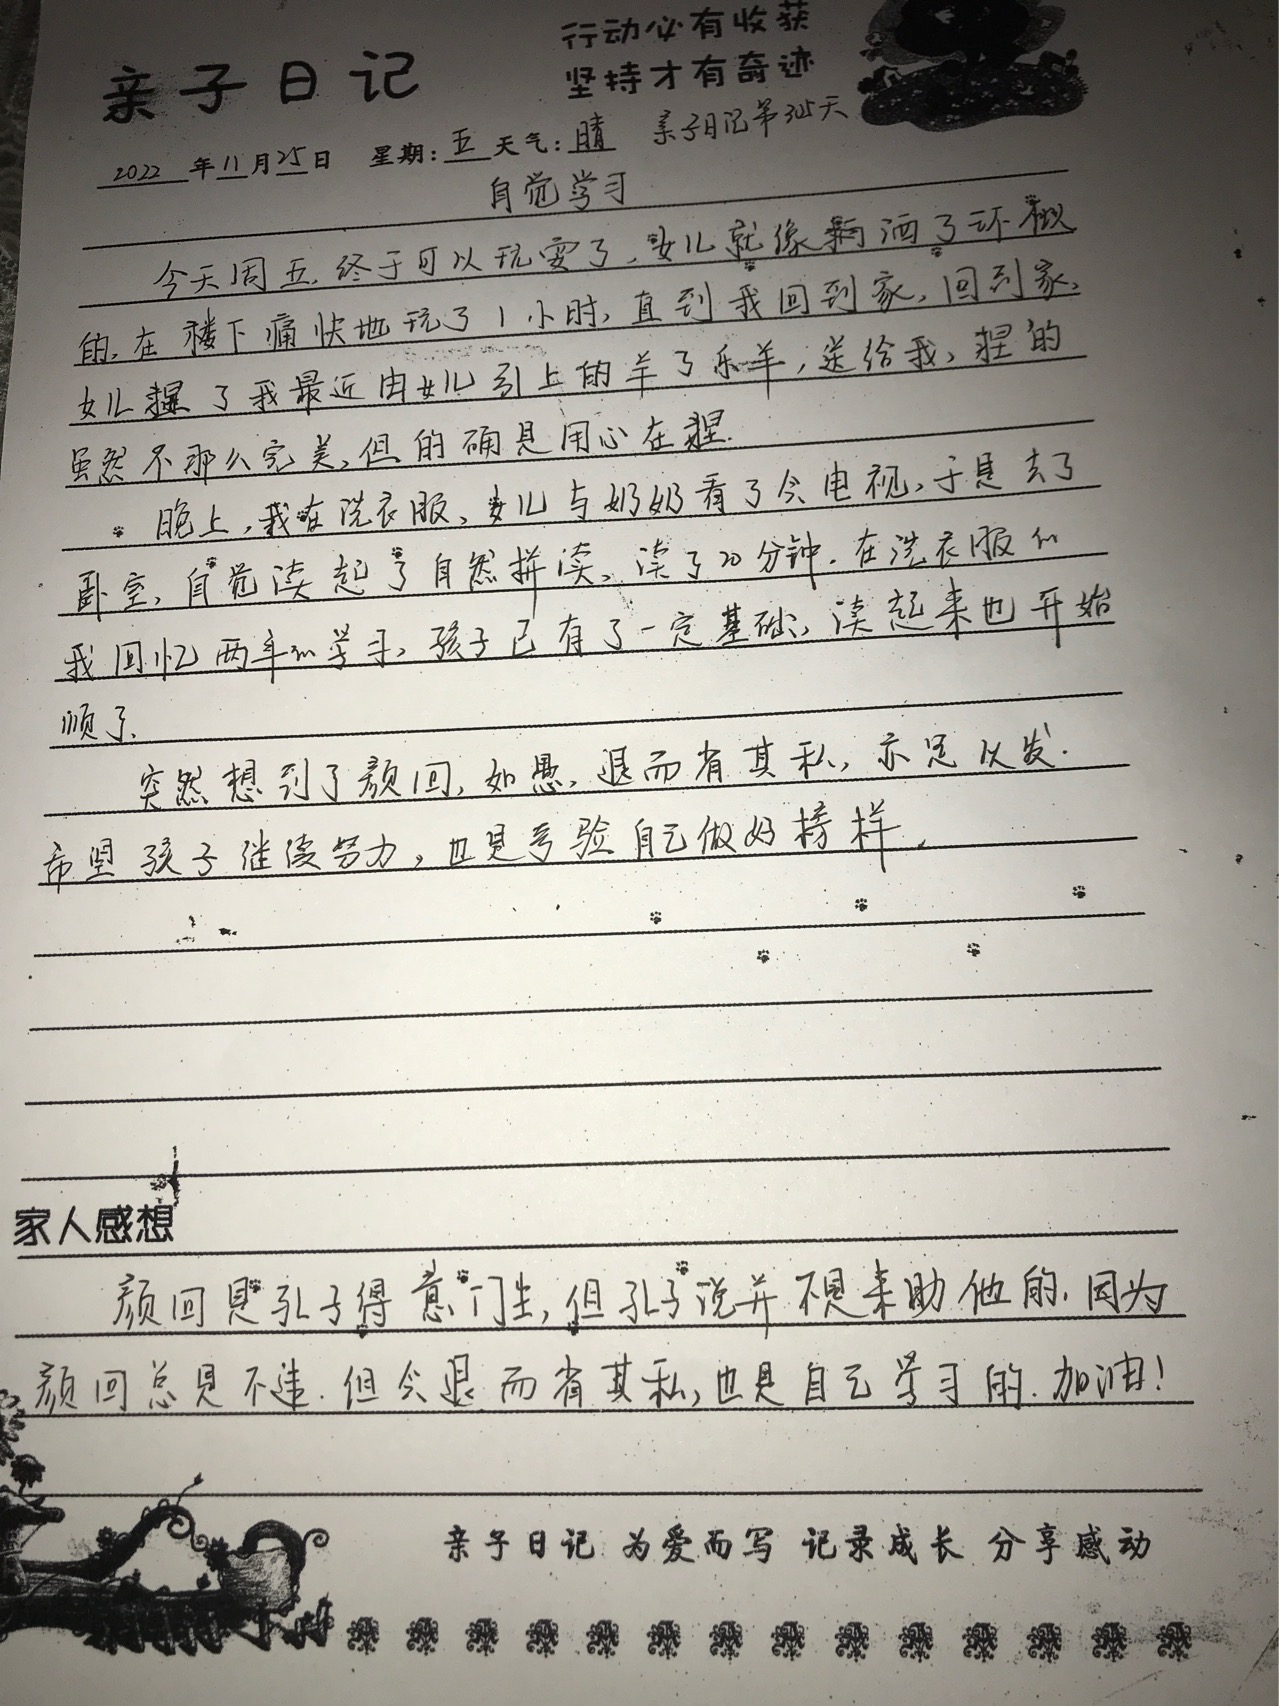 行动必有收获
坚持才有奇迹
亲子日记
亲子日记第325天
2022年11月25日 星期:五 天气:晴
自觉学习
今天周五,终于可以玩耍了,女儿就像 洒了环
的,在楼下痛快地玩了1小时,直到我回到家,回到家,
女儿捏了我最近由女儿引上的羊了乐羊,送给我,捏的
虽然不那么完美,但的确是用心在捏.
晚上,我在洗衣服,女儿与奶奶看了会电视,于是去了
卧室,自觉读起了自然拼读,读了20分钟.在洗衣服的
我回忆两年的学习,孩子已有了一定基础,读起来也开始
顺了.
突然想到了颜回,如愚,退而省其私,亦足以发.
希望孩子继续努力,也是考验自己做好榜样.
家人感想
颜回是孔子得意门生,但孔子说并不是来助他的,因为
颜回总是不违.但今退而省其私,也是自己学习的.加油!
亲子日记 为爱而写 记录成长 分享感动